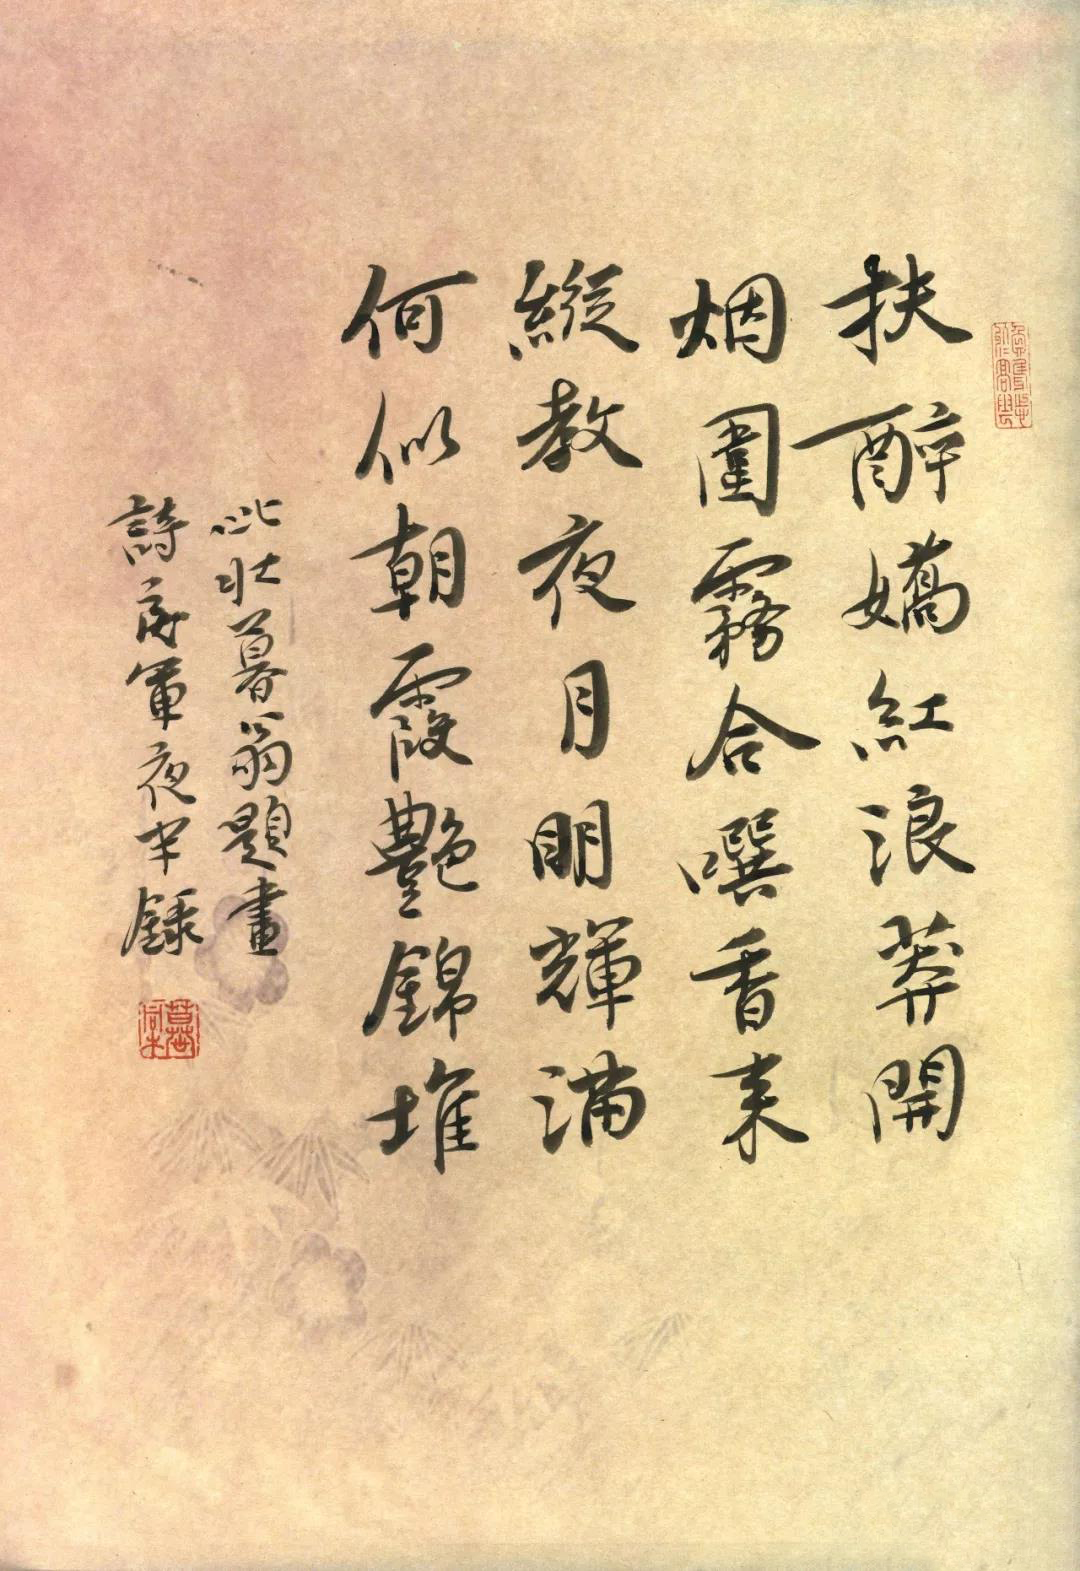 扶醉嬌紅浪莽開
烟圍霧合噀香来
縱教夜月明輝滿
何似朝霞艷錦堆
此壯暮翁題畫
詩軍夜半録